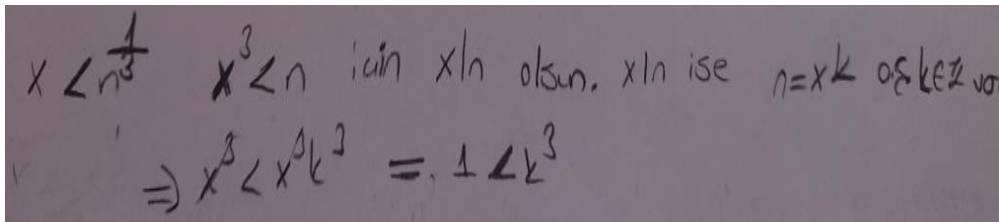 x < n^{1/3} x³ < n için x|n olsun. x|n ise n=xk ∂ş k∈ℤ va
⇒ x³ < x³k³ = 1 < k³